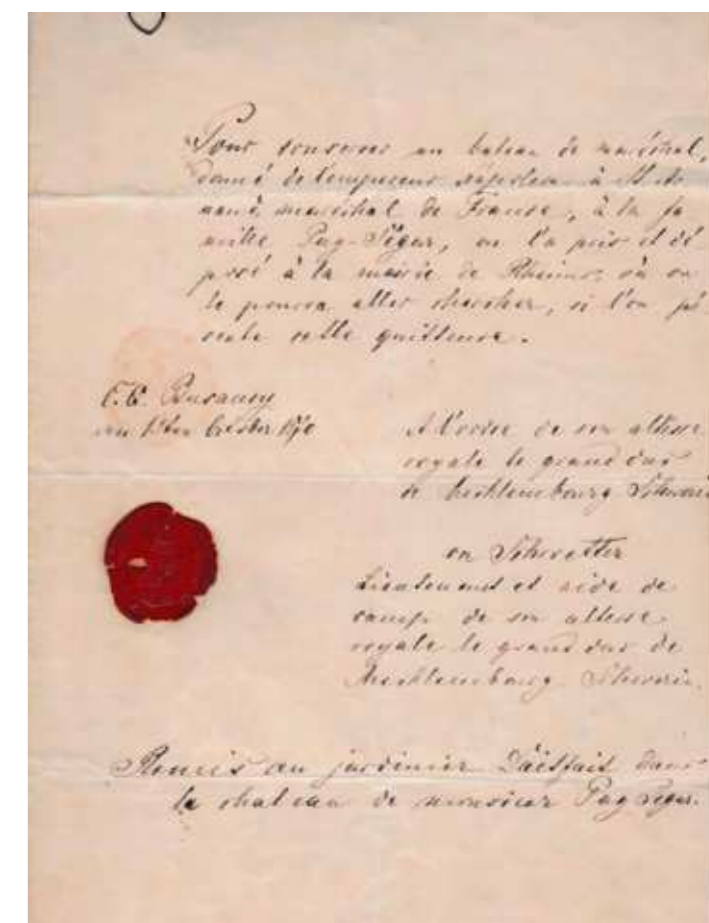 Pour conserver un baton de maréchal,
donné de l'empereur Napoleon à St Ar
naud, maréchal de France, à la fa
mille Puy-Ségur, on l'a pris et dé
posé à la mairie de Rheims où on
le pourra aller chercher, si l'on pré
sente cette quittance.
C. G. Busancy
Octobre 1870
A l'ordre de son altesse
royale le grand duc
de Mecklembourg Schwerin
Lieutenant et aide de
camp de son altesse
royale le grand duc de
Mecklembourg Schwerin.
Remis au jardinier dans
le chateau de monsieur Puy Ségur.